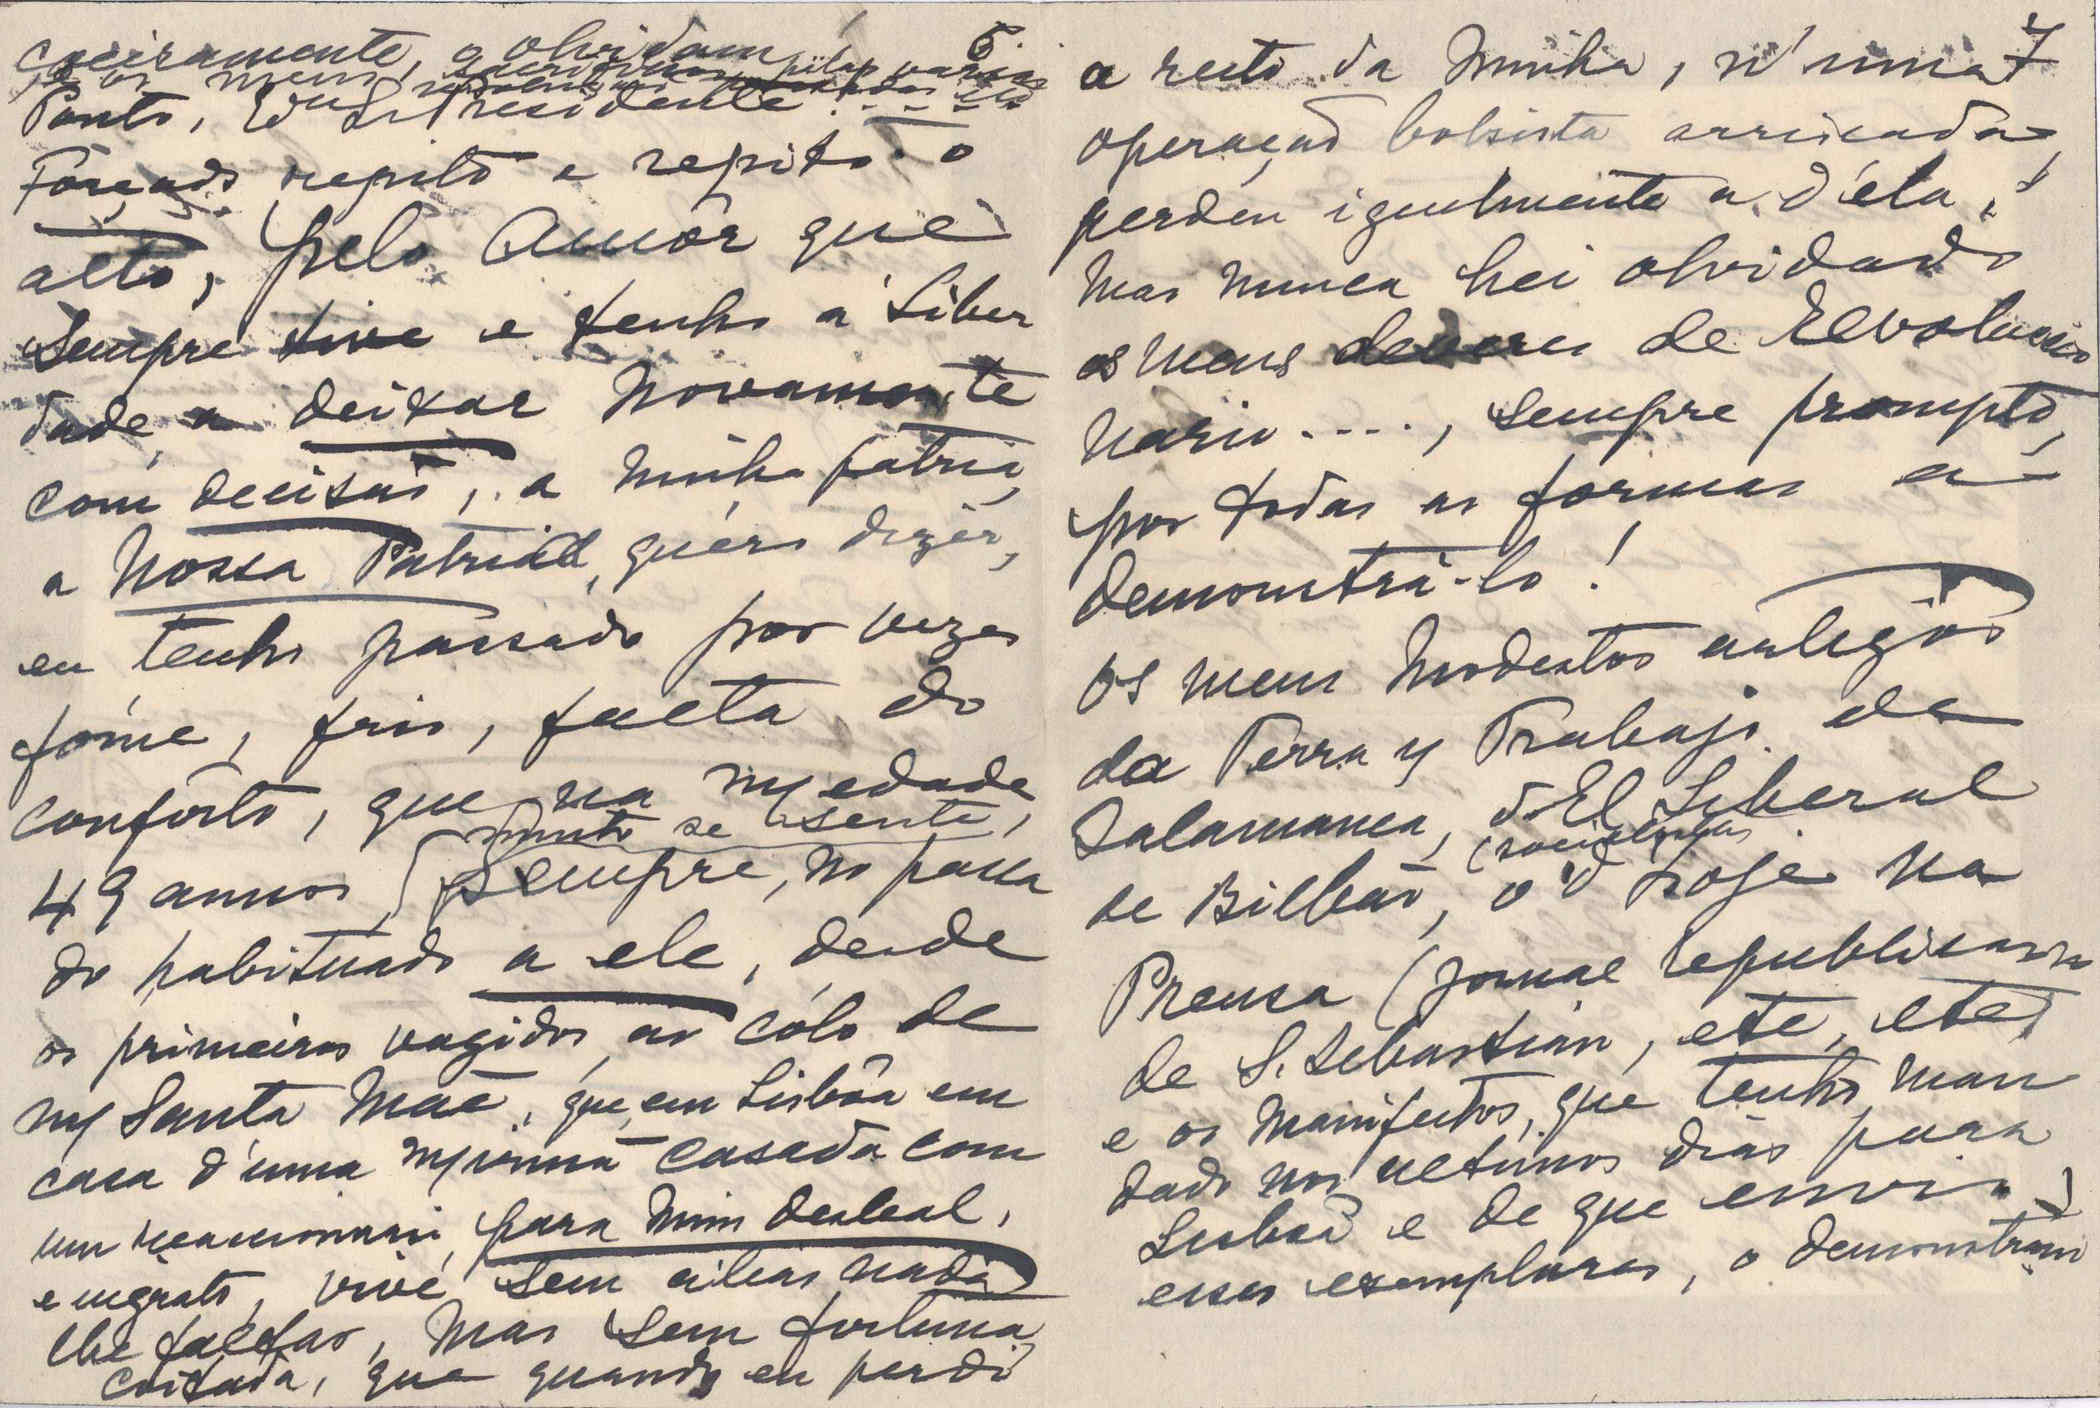 5.
olvidam
Ponto, Exmo Sr. Presidente!
Forçado, repito e repito o
alto, pelo Amôr que
sempre tive e tenho á Liber
dade, a deixar novamente
com decisão, a minha patria,
a Nossa Patria, quéro dizêr,
eu tenho passado por vezes
fóme, frio, falta do
conforto, que na my edade,
muito se sente,
49 annos, sempre, no passa
do habituado a ele, desde
os primeiros vagidos ao cólo de
my Santa Mãe, que, em Lisbôa em
casa d'uma my irmã casada com
um reaccionario, para mim desleal,
e ingrato, vive sem nada
lhe faltar, mas sem fortuna,
coitada, que quando eu perdi
7
a resto da minha, n'uma
operação bolsista arriscada,
perdeu igualmente a d'ela,
mas nunca hei olvidado
os meus deveres de Revolucio
nario...., sempre prompto,
por todas as formas a
demonstrá-lo!
Os meus modestos artigos
da Terra y Trabajo de
Salamanca, d'El Liberal
(socialistas)
de Bilbao, o d'hoje na
Prensa (jornal republicano
de S. Sebastian, etc, etc,
e os manifestos, que tenho man
dado nos ultimos dias para
Lisboa e de que envio
esses exemplares, o demonstram